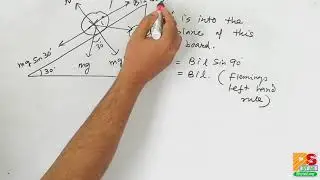 is into the
plane of this
board.
= Bil Sin 90°
= Bil. (Flemings
left hand
rule)
mg Sin 30°
30
30°
mg
mg
BS